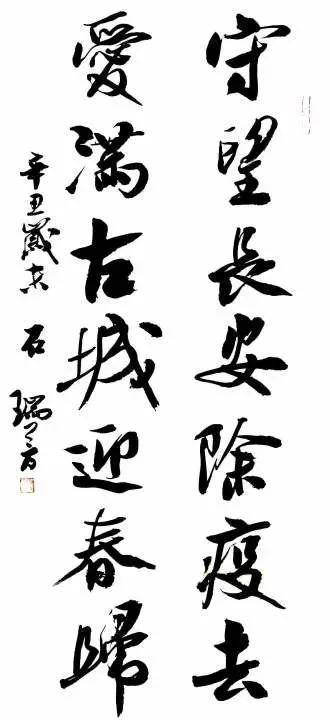 守望长安除疫去
愛满古城迎春歸
辛丑歲末 石瑞芳